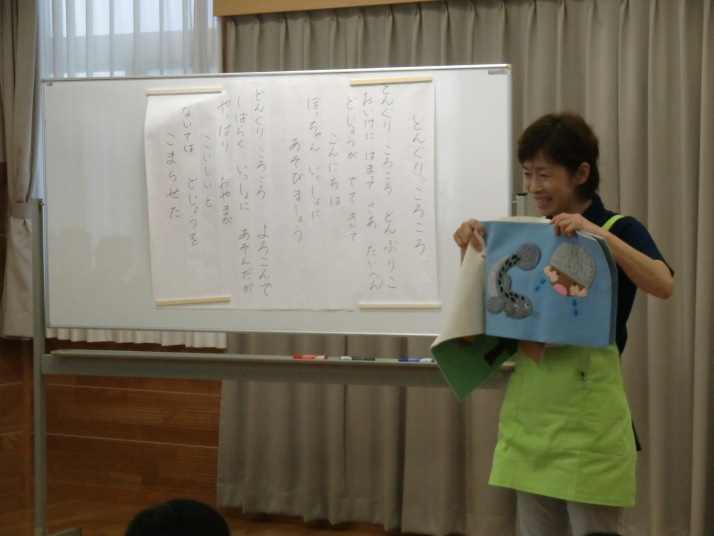 どんぐり ころころ
どんぐり ころころ どんぶりこ
おいけに はまって さあ たいへん
どじょうが でて きて
こんにちは
ぼっちゃん いっしょに
あそびましょう
どんぐり ころころ よろこんで
しばらく いっしょに あそんだが
やっぱり おやまが
こいしいと
ないては どじょうを
こまらせた